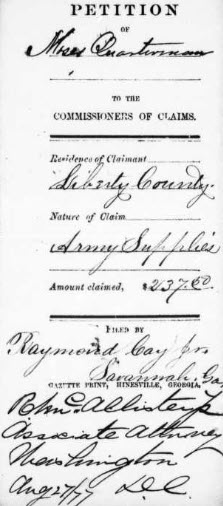 PETITION
OF
Moses Quarterman
TO THE
COMMISSIONERS OF CLAIMS.
Residence of Claimant
Liberty County.
Nature of Claim
Army Supplies
Amount claimed, $237.50
FILED BY
Raymond Cay Jr
Savannah, Ga
GAZETTE PRINT, HINESVILLE, GEORGIA.
Associate Attorney
Washington
Aug 27/77 D.C.